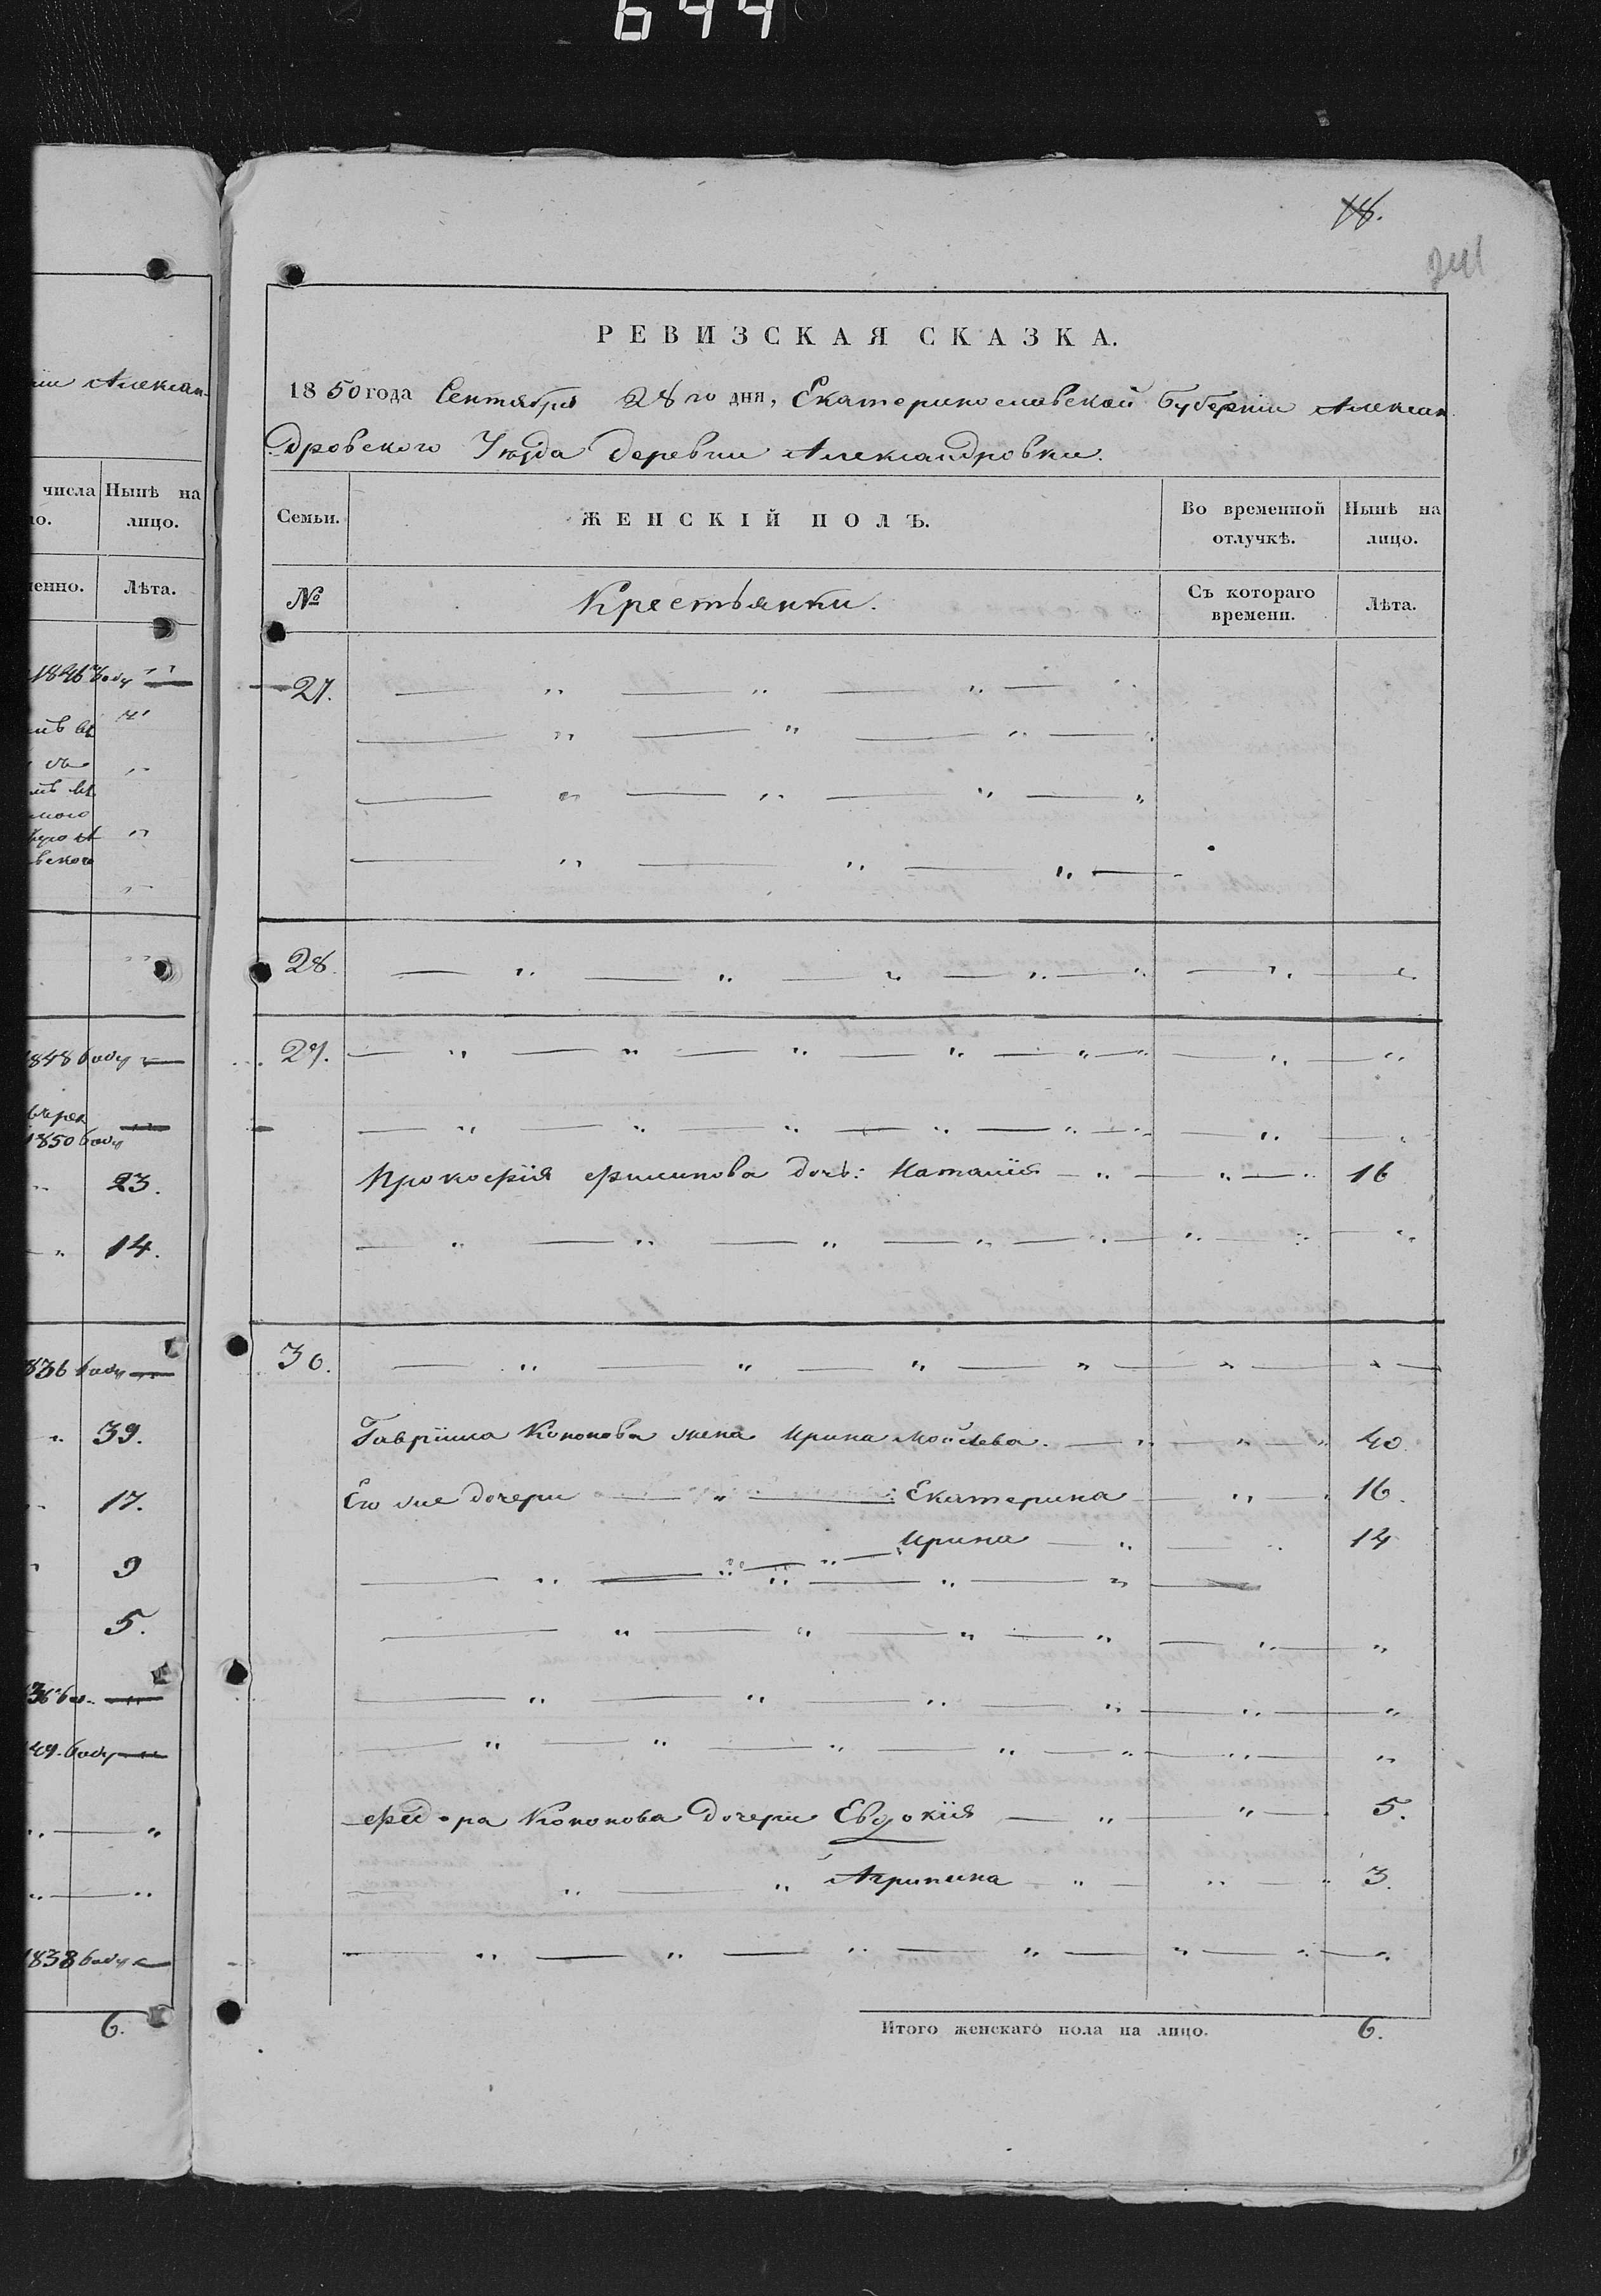 644
18.
241
РЕВИЗСКАЯ СКАЗКА.
1850 года Сентября 28го дня, Екатеринославской Губерніи Алексан
дровского Уѣзда деревни Александровки.
Семьи. ЖЕНСКІЙ ПОЛЪ. Во временной отлучкѣ. Нынѣ на лицо.
№ Крестьянки. Съ котораго времени. Лѣта.
27. — „ — „ — „ — „
— „ — „ — „ — „
— „ — „ — „ — „
— „ — „ — „ —
28. — „ — „ — „ — „ — „ — „ — „
29. — „ — „ — „ — „ — „ — „ — „ — „
— „ — „ — „ — „ — „ — „ — „ — „
Прокофія Филипова дочь: Наталія — „ — „ — „ 16
— „ — „ — „ — „ — „ — „ — „ — „
30. — „ — „ — „ — „ — „ — „ —
Гавріила Кононова жена Ирина Мойсѣева. — „ — „ — „ 40.
Его же дочери — „ — : Екатерина — „ — . 16.
„ — „ — „ Ирина — „ — „ 14
— „ — „ — „ — „ —
— „ — „ — „ — „ — „ — „
— „ — „ — „ — „ — „ — „
— „ — „ — „ — „ — „ — „ — „
Федора Кононова дочери Евдокія — „ — „ — . 5.
— „ — „ Агрипина — „ — „ — „ 3.
— „ — „ — „ — „ — „ — „ — „
Итого женскаго пола на лицо. 6.
ніи Алексан-
числа Нынѣ на
ло. лицо.
менно. Лѣта.
1846 году „
вского
1848 году „
1850 году
„ 23.
„ 14.
836 году „
„ 39.
„ 17.
„ 9
5.
49. году „
„ — „
„ — „
1838 году
6.